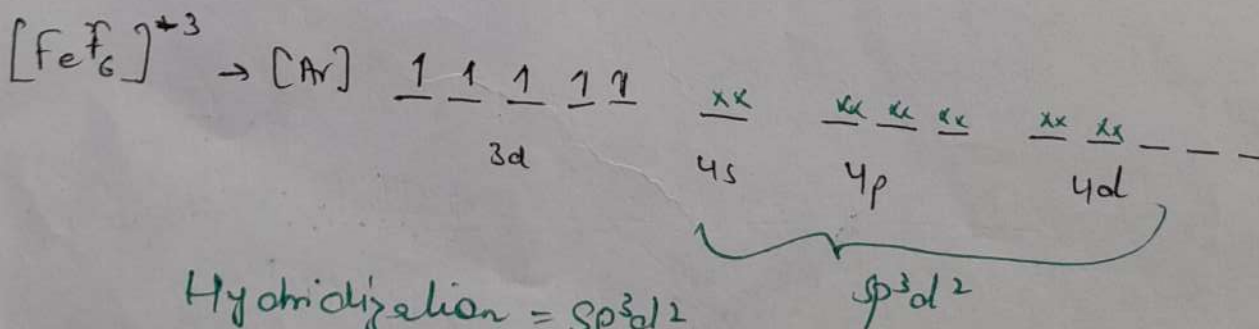 [FeF6]+3 → [Ar] 1 1 1 1 1 xx xx xx xx xx xx _ _ _
3d 4s 4p 4d
sp³d²
Hybridization = sp³d²